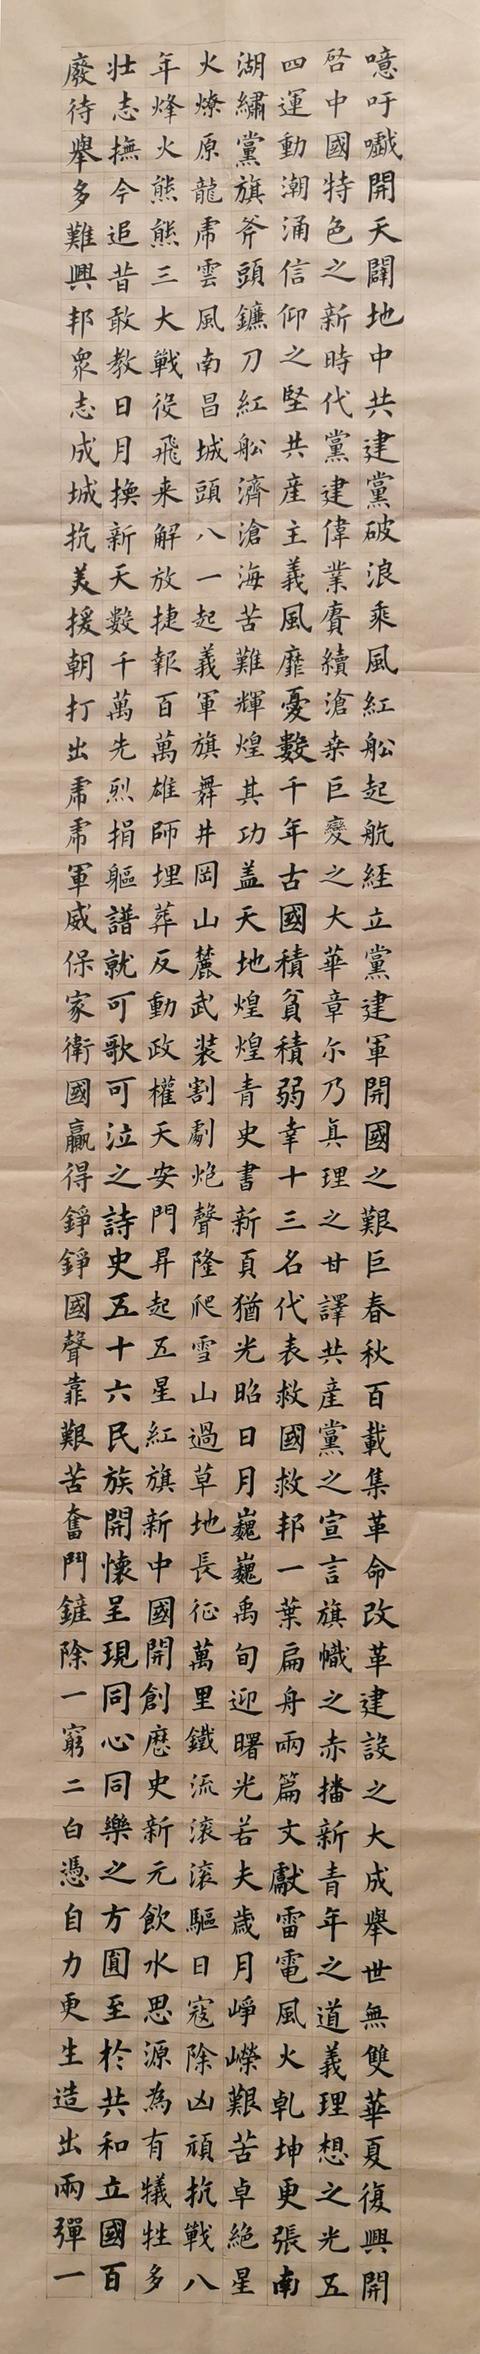 噫吁嚱開天闢地中共建黨破浪乘風紅船起航経立黨建軍開國之艱巨春秋百載集革命改革建設之大成舉世無雙華夏復興開
啓中國特色之新時代黨建偉業賡續滄桒巨變之大華章尓乃真理之甘譯共産黨之宣言旗幟之赤播新青年之道義理想之光五
四運動潮涌信仰之堅共産主義風靡憂數千年古國積貧積弱幸十三名代表救國救邦一葉扁舟兩篇文獻雷電風火乹坤更張南
湖繡黨旗斧頭鐮刀紅船濟滄海苦難輝煌其功盖天地煌煌青史書新頁猶光昭日月巍巍禹甸迎曙光若夫歲月崢嶸艱苦卓絶星
火燎原龍虎雲風南昌城頭八一起義軍旗舞井岡山麓武装割劇炮聲隆爬雪山過草地長征萬里鐵流滚滚驅日寇除凶頑抗戰八
年烽火熊熊三大戰役飛来解放捷報百萬雄師埋葬反動政權天安門昇起五星紅旗新中國開創歷史新元飲水思源為有犧牲多
壮志撫今追昔敢教日月換新天數千萬先烈捐軀譜就可歌可泣之詩史五十六民族開懷呈現同心同樂之方圓至於共和立國百
廢待舉多難興邦衆志成城抗美援朝打出虎虎軍威保家衛國贏得錚錚國聲靠艱苦奮鬥鏟除一窮二白憑自力更生造出兩彈一